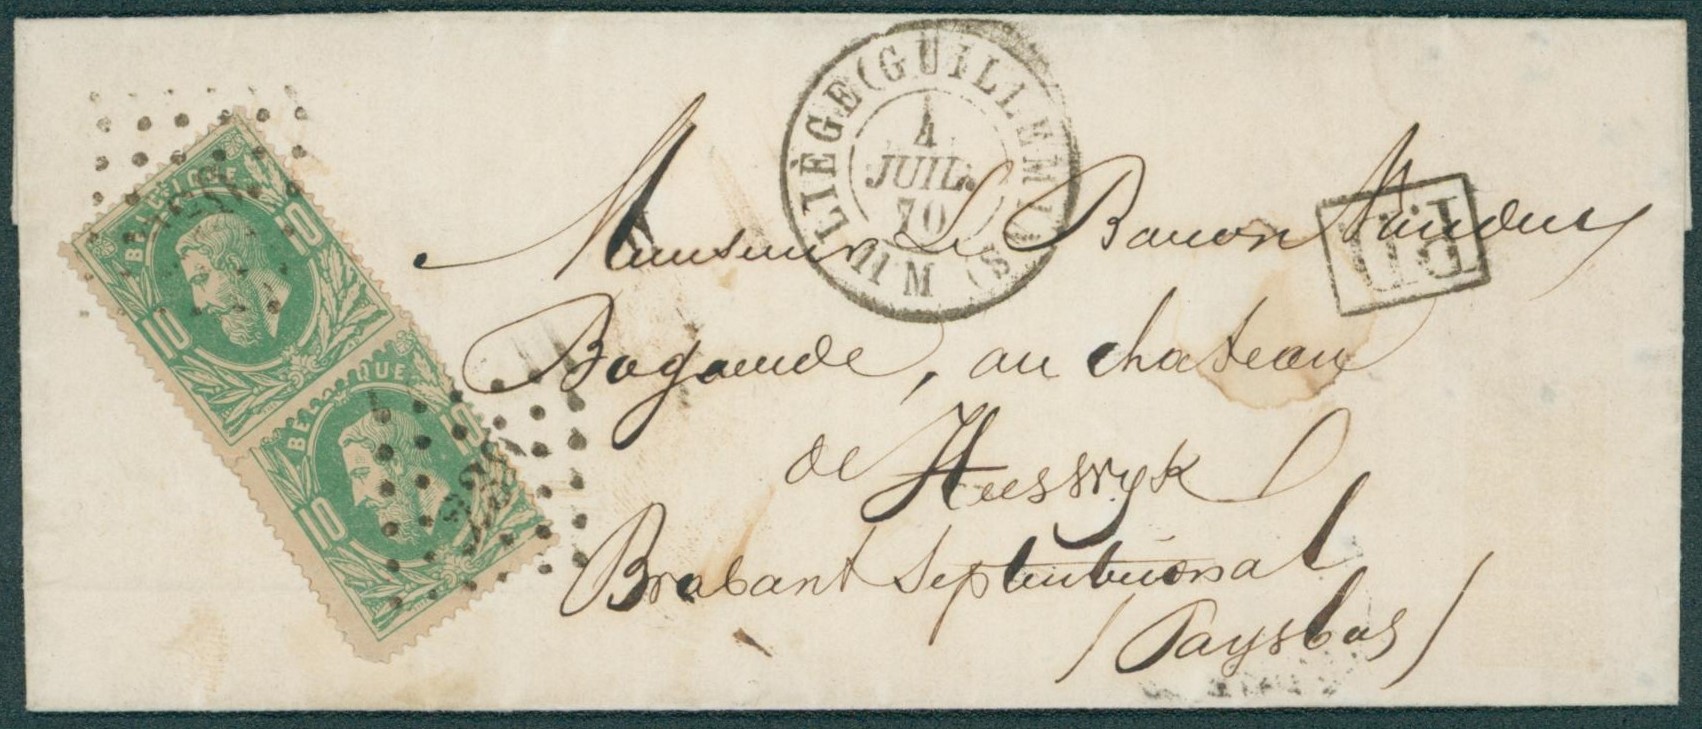 BELGIQUE
10 10
BELGIQUE
10 10
LIÈGE (GUILLEMINS)
4
JUIL.
70
P.D
Monsieur Le Baron Vanden
Bogaerde, au chateau
de Heeswyk
Brabant Septentrional
(Paysbas)